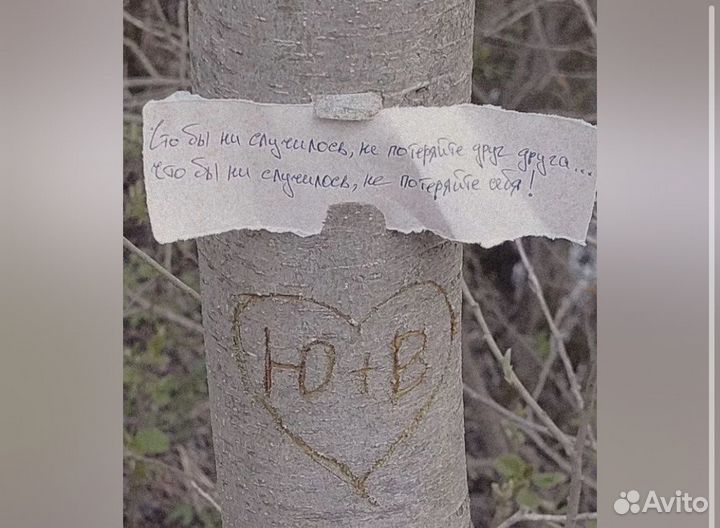 Что бы ни случилось, не потеряйте друг друга...
что бы ни случилось, не потеряйте себя!
Ю+В
Avito